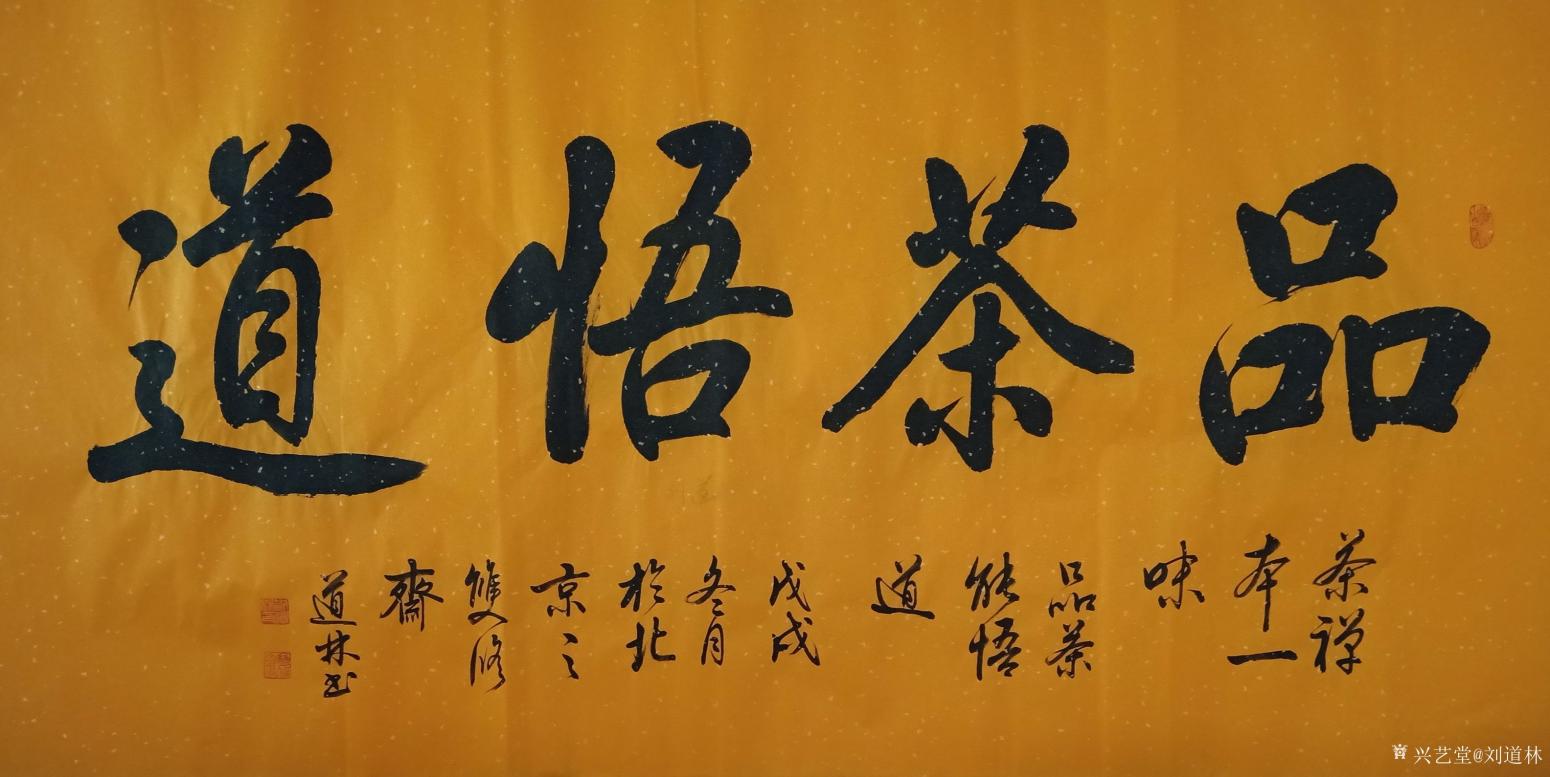 品茶悟道
茶禅
本一
味
品茶
能悟
道
戊戌
冬月
於北
京之
雙修
齋
道林书
兴艺堂@刘道林